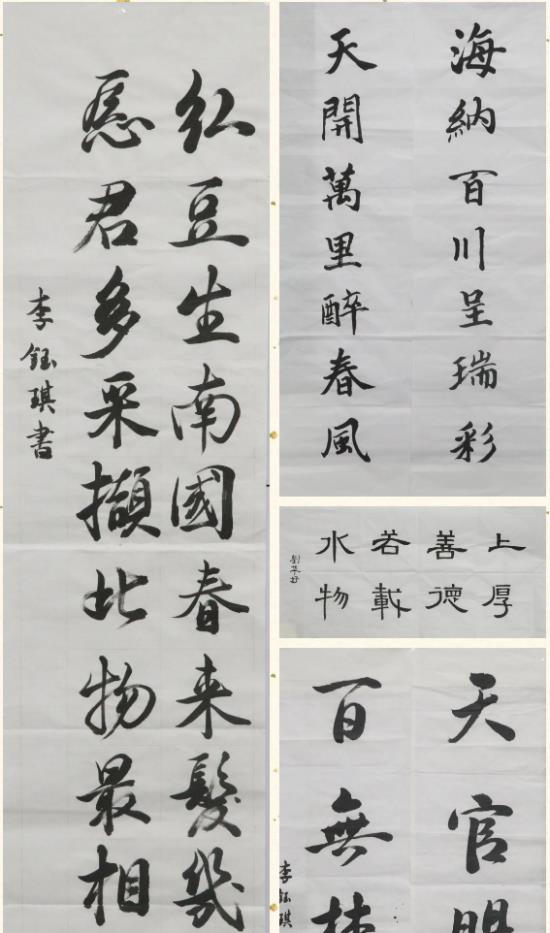 红豆生南國春来髮幾
愿君多采擷此物最相
李鈺琪書
海納百川呈瑞彩
天開萬里醉春風
上善若水
厚德載物
天官
百無
李鈺琪